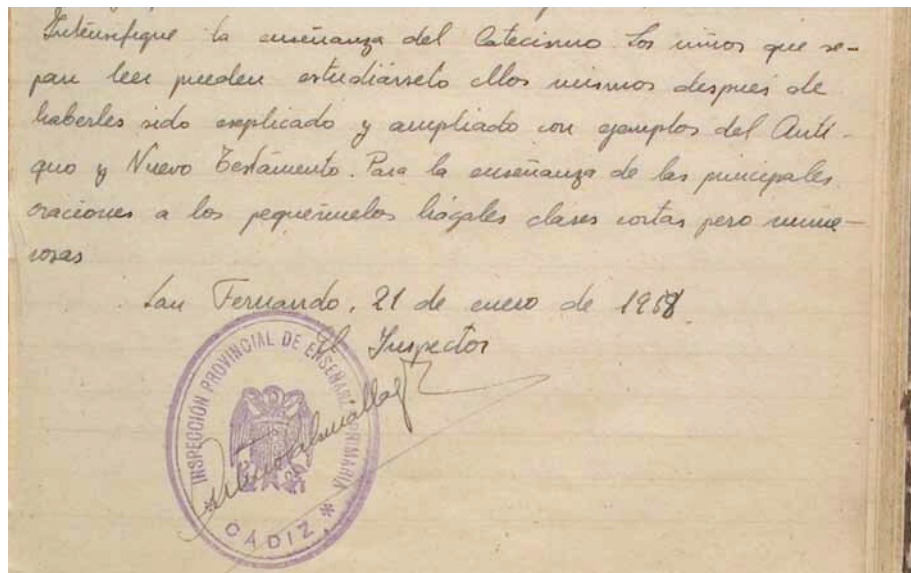 Intensifique la enseñanza del Catecismo. Los niños que se-
pan leer pueden estudiárselo ellos mismos después de
haberles sido explicado y ampliado con ejemplos del Anti-
guo y Nuevo Testamento. Para la enseñanza de las principales
oraciones a los pequeñuelos hágales clases cortas pero nume-
rosas
San Fernando, 21 de enero de 1958
El Inspector
INSPECCIÓN PROVINCIAL DE ENSEÑANZA PRIMARIA
* CÁDIZ *